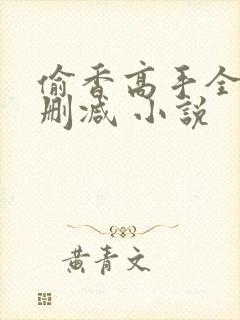 偷香高手全
删减 小説
黄青文